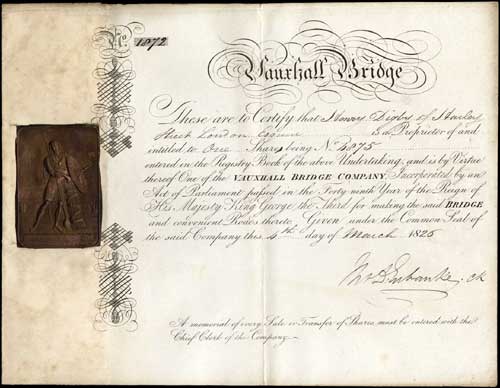 No. 1872
Vauxhall Bridge
These are to Certify that Henry Digby of
London Esquire is a Proprietor of and
intitled to One Share being No. 4075
entered in the Registry Book of the above Undertaking, and is by Virtue
thereof One of the VAUXHALL BRIDGE COMPANY, Incorporated by an
Act of Parliament passed in the Forty ninth Year of the Reign of
His Majesty King George the Third for making the said BRIDGE
and convenient Rodes thereto. Given under the Common Seal of
the said Company this 4th day of March 1825
Ck
A memorial of every Sale or Transfer of Shares, must be entered with the
Chief Clerk of the Company.